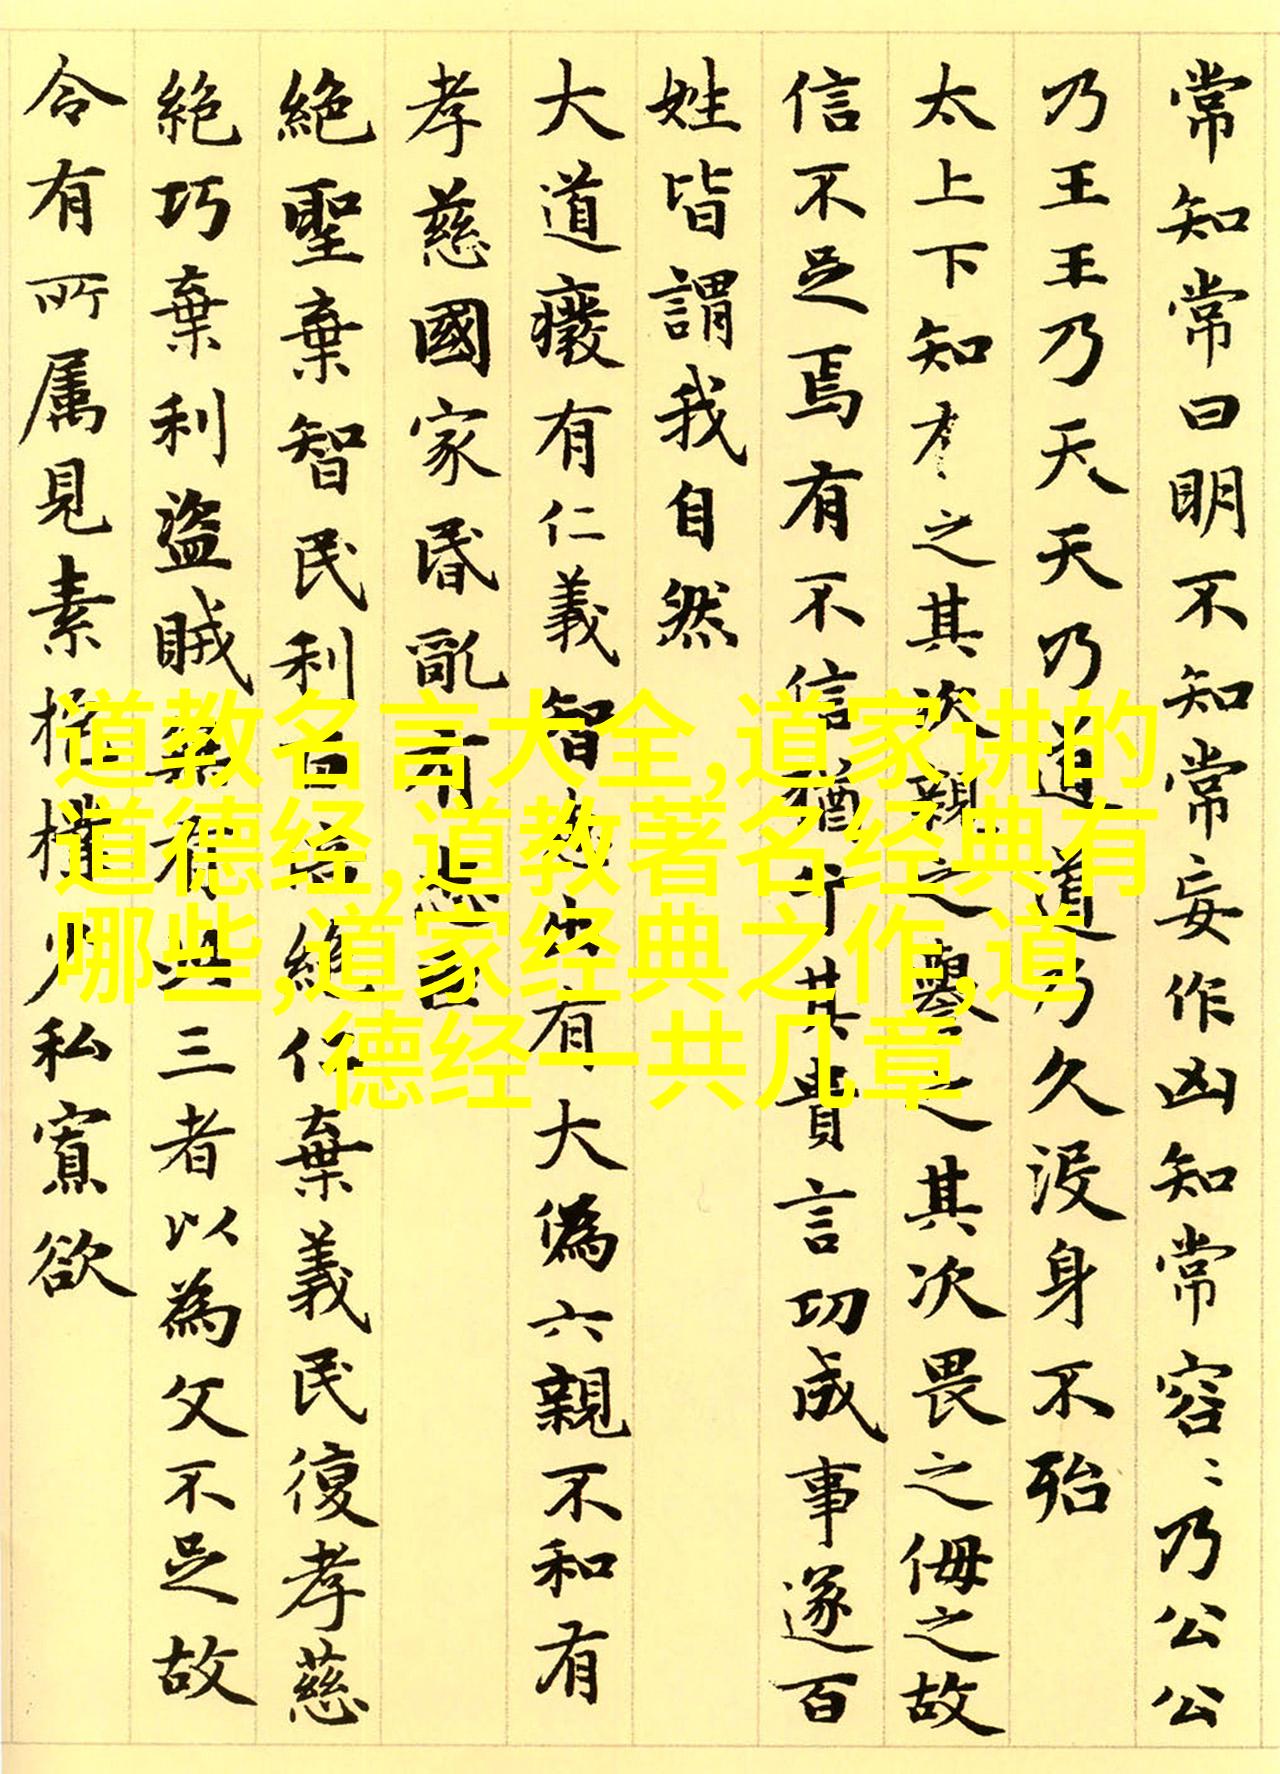 常知常曰明不知知常妄作凶知常容〻乃公公
乃王王乃天天乃道道乃久没身不殆
太上下知有之其次親之譽之其次畏之侮之故
信不足焉有不信信猶乎其貴言功成事遂百
姓皆謂我自然
大道癈有仁義智惠出有大偽六親不和有
孝慈國家昏亂有忠臣
絶聖棄智民利百倍絶仁棄義民復孝慈
絶巧棄利盗賊無有此三者以為文不足故
令有所属見素抱樸少私寡欲
道教名言大全,道家讲的
道德经,道教著名经典有
哪些,道家经典之作,道
德经一共几章